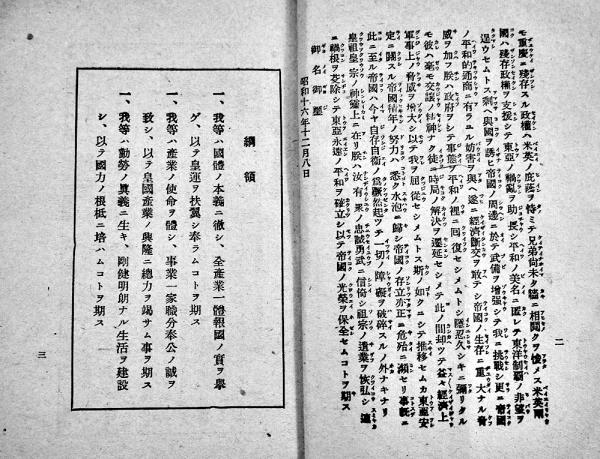 モ重慶ニ殘存スル政權ハ米英ノ庇蔭ヲ恃ミテ兄弟尚未タ牆ニ相鬩クヲ悛メス米英兩
國ハ殘存政權ヲ支援シテ東亞ノ禍亂ヲ助長シ平和ノ美名ニ匿レテ東洋制覇ノ非望ヲ
逞ウセムトス剩ヘ與國ヲ誘ヒ帝國ノ周邊ニ於テ武備ヲ增強シテ我ニ挑戰シ更ニ帝國
ノ平和的通商ニ有ラユル妨害ヲ與ヘ遂ニ經濟斷交ヲ敢テシ帝國ノ生存ニ重大ナル脅
威ヲ加フ朕ハ政府ヲシテ事態ヲ平和ノ裡ニ囘復セシメムトシ隱忍久シキニ彌リタル
モ彼ハ毫モ交讓ノ精神ナク徒ニ時局ノ解決ヲ遷延セシメテ此ノ間却ツテ益々經濟上
軍事上ノ脅威ヲ增大シ以テ我ヲ屈從セシメムトス斯ノ如クニシテ推移セムカ東亞安
定ニ關スル帝國積年ノ努力ハ悉ク水泡ニ歸シ帝國ノ存立亦正ニ危殆ニ瀕セリ事既ニ
此ニ至ル帝國ハ今ヤ自存自衞ノ爲蹶然起ツテ一切ノ障礙ヲ破碎スルノ外ナキナリ
皇祖皇宗ノ神靈上ニ在リ朕ハ汝有衆ノ忠誠勇武ニ信倚シ祖宗ノ遺業ヲ恢弘シ速
ニ禍根ヲ芟除シテ東亞永遠ノ平和ヲ確立シ以テ帝國ノ光榮ヲ保全セムコトヲ期ス
御名御璽
昭和十六年十二月八日
二
綱領
一、我等ハ國體ノ本義ニ徹シ、全產業一體報國ノ實ヲ擧
ゲ、以テ皇運ヲ扶翼シ奉ラムコトヲ期ス
一、我等ハ產業ノ使命ヲ體シ、事業一家職分奉公ノ誠ヲ
致シ、以テ皇國產業ノ興隆ニ總力ヲ竭サム事ヲ期ス
一、我等ハ勤勞ノ眞義ニ生キ、剛健明朗ナル生活ヲ建設
シ、以テ國力ノ根柢ニ培ハムコトヲ期ス
三